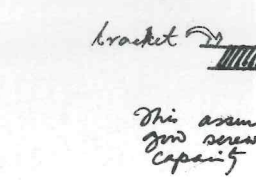 bracket
This assum
your screw
capacity